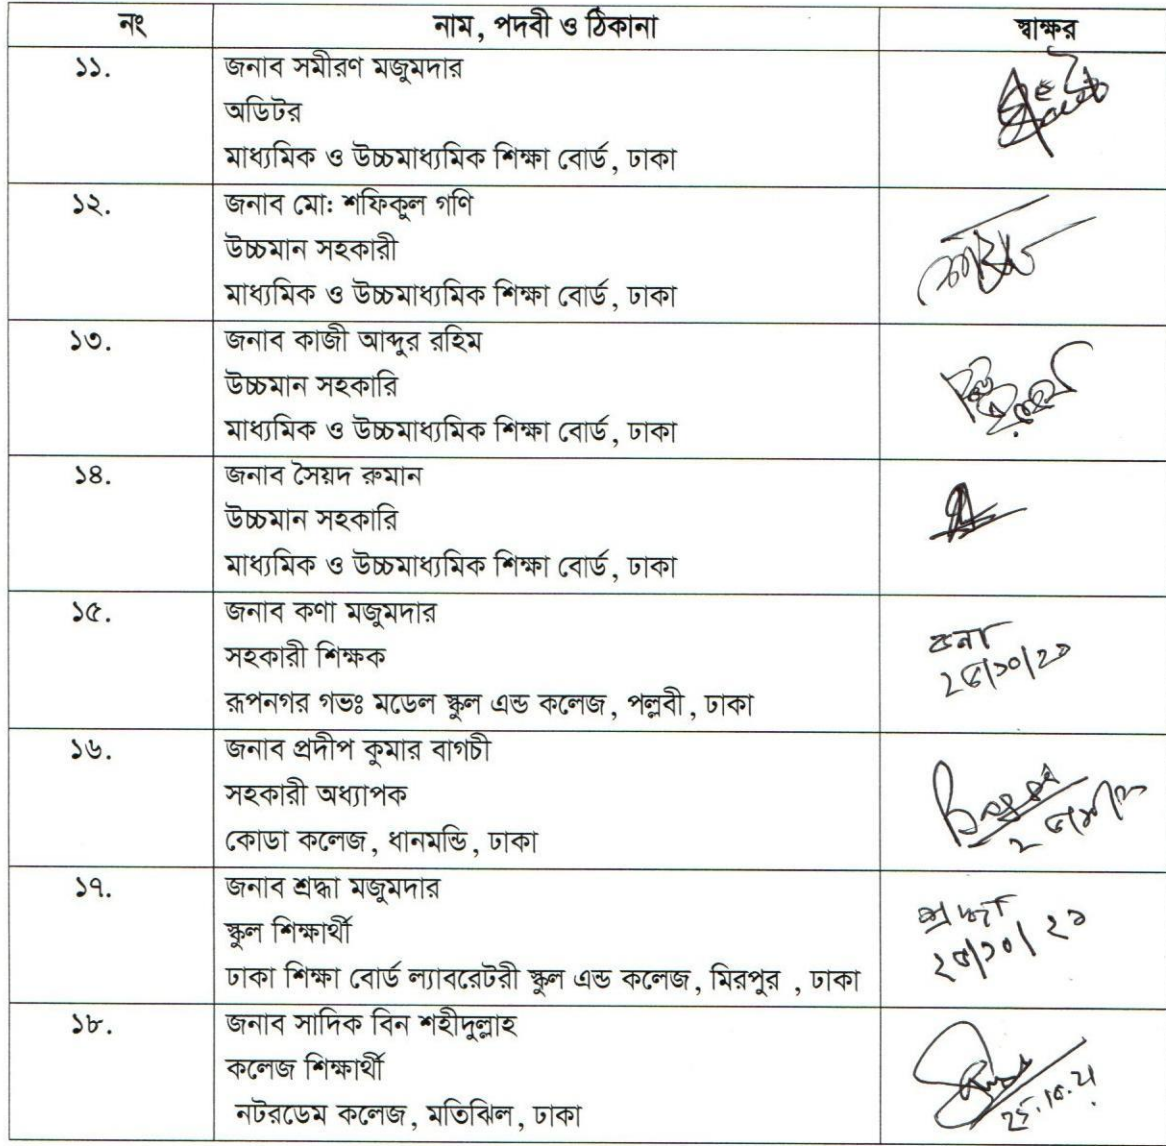 নং নাম, পদবী ও ঠিকানা স্বাক্ষর
১১. জনাব সমীরণ মজুমদার
অডিটর
মাধ্যমিক ও উচ্চমাধ্যমিক শিক্ষা বোর্ড, ঢাকা
১২. জনাব মো: শফিকুল গণি
উচ্চমান সহকারী
মাধ্যমিক ও উচ্চমাধ্যমিক শিক্ষা বোর্ড, ঢাকা
১৩. জনাব কাজী আব্দুর রহিম
উচ্চমান সহকারি
মাধ্যমিক ও উচ্চমাধ্যমিক শিক্ষা বোর্ড, ঢাকা
১৪. জনাব সৈয়দ রুমান
উচ্চমান সহকারি
মাধ্যমিক ও উচ্চমাধ্যমিক শিক্ষা বোর্ড, ঢাকা
১৫. জনাব কণা মজুমদার
সহকারী শিক্ষক কনা
রূপনগর গভঃ মডেল স্কুল এন্ড কলেজ, পল্লবী, ঢাকা ২৫/১০/২১
১৬. জনাব প্রদীপ কুমার বাগচী
সহকারী অধ্যাপক
কোডা কলেজ, ধানমন্ডি, ঢাকা
১৭. জনাব শ্রদ্ধা মজুমদার
স্কুল শিক্ষার্থী শ্রদ্ধা
ঢাকা শিক্ষা বোর্ড ল্যাবরেটরী স্কুল এন্ড কলেজ, মিরপুর , ঢাকা ২৫/১০/২১
১৮. জনাব সাদিক বিন শহীদুল্লাহ
কলেজ শিক্ষার্থী
নটরডেম কলেজ, মতিঝিল, ঢাকা 25.10.21